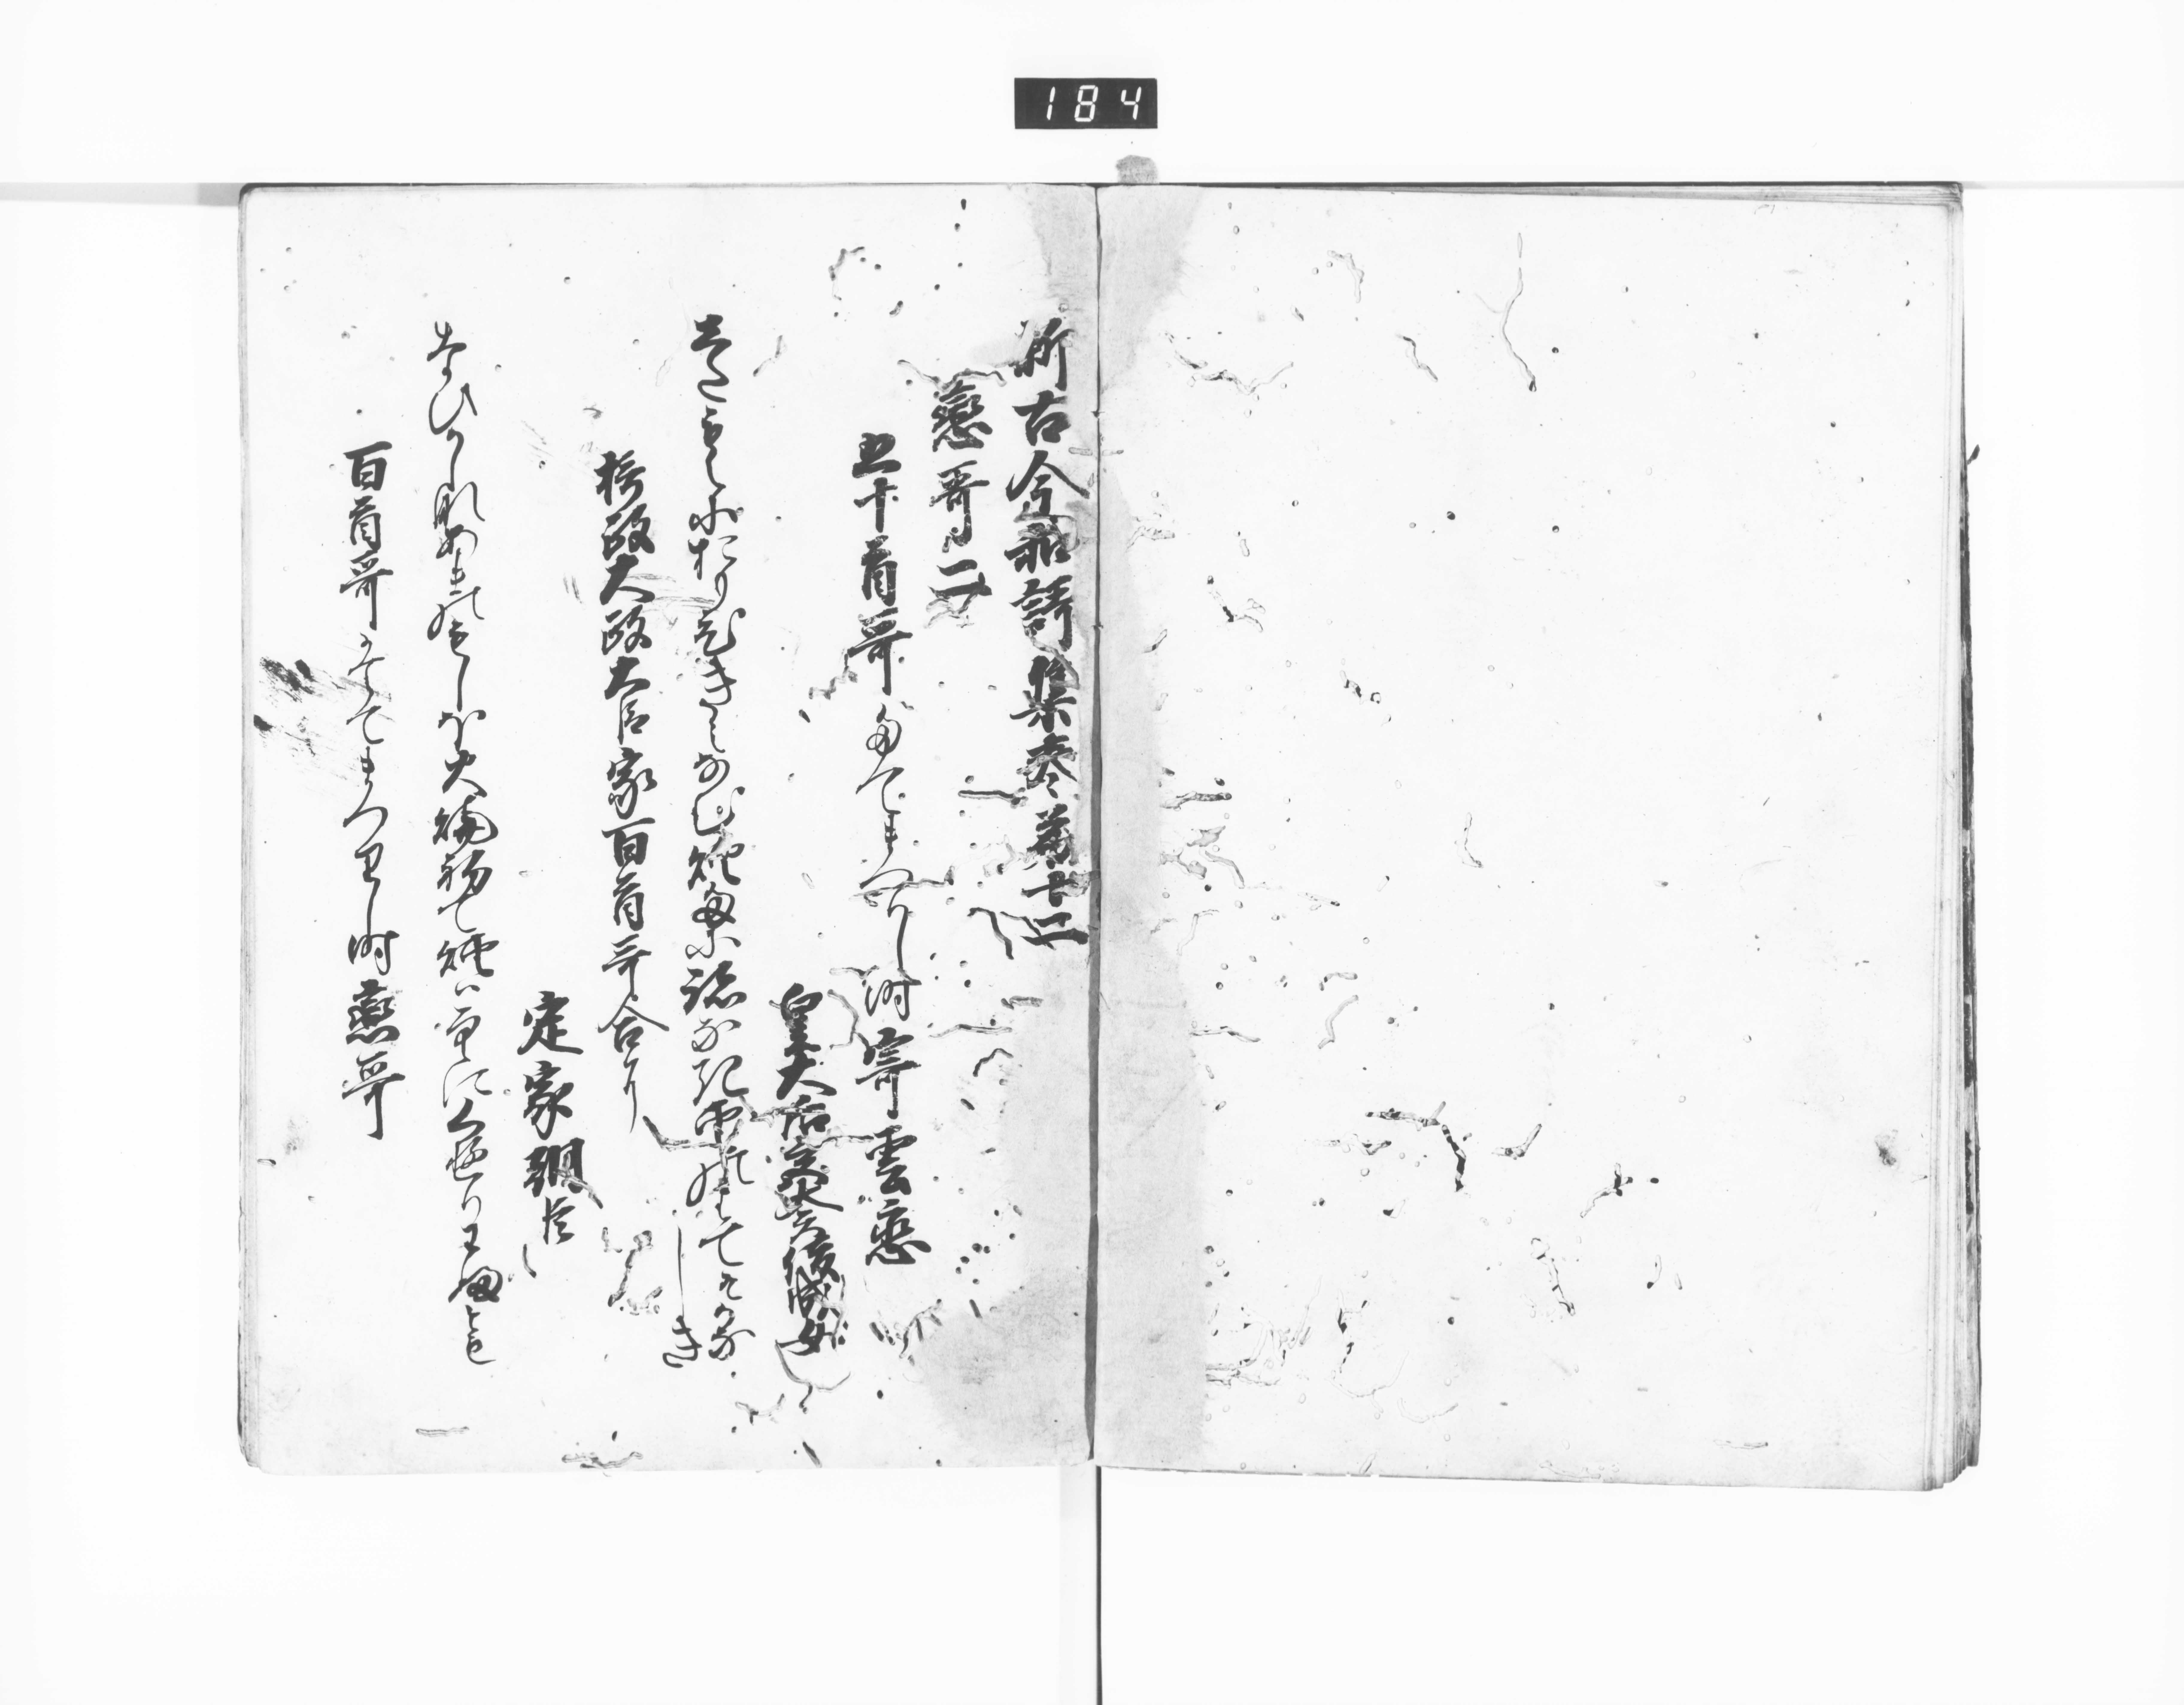 184
新古今和謌集巻第十二
戀哥二
五十首哥たてまつりし時寄雲恋
皇太后宮大夫俊成女
したもえにおもひきえなむ煙たに跡なき雲のはてそかな
しき
摂政太政大臣家百首哥合に
定家朝臣
なひかしなあまのもしほ火焼初て煙は空にくゆりわふとも
百首哥たてまつりし時戀哥